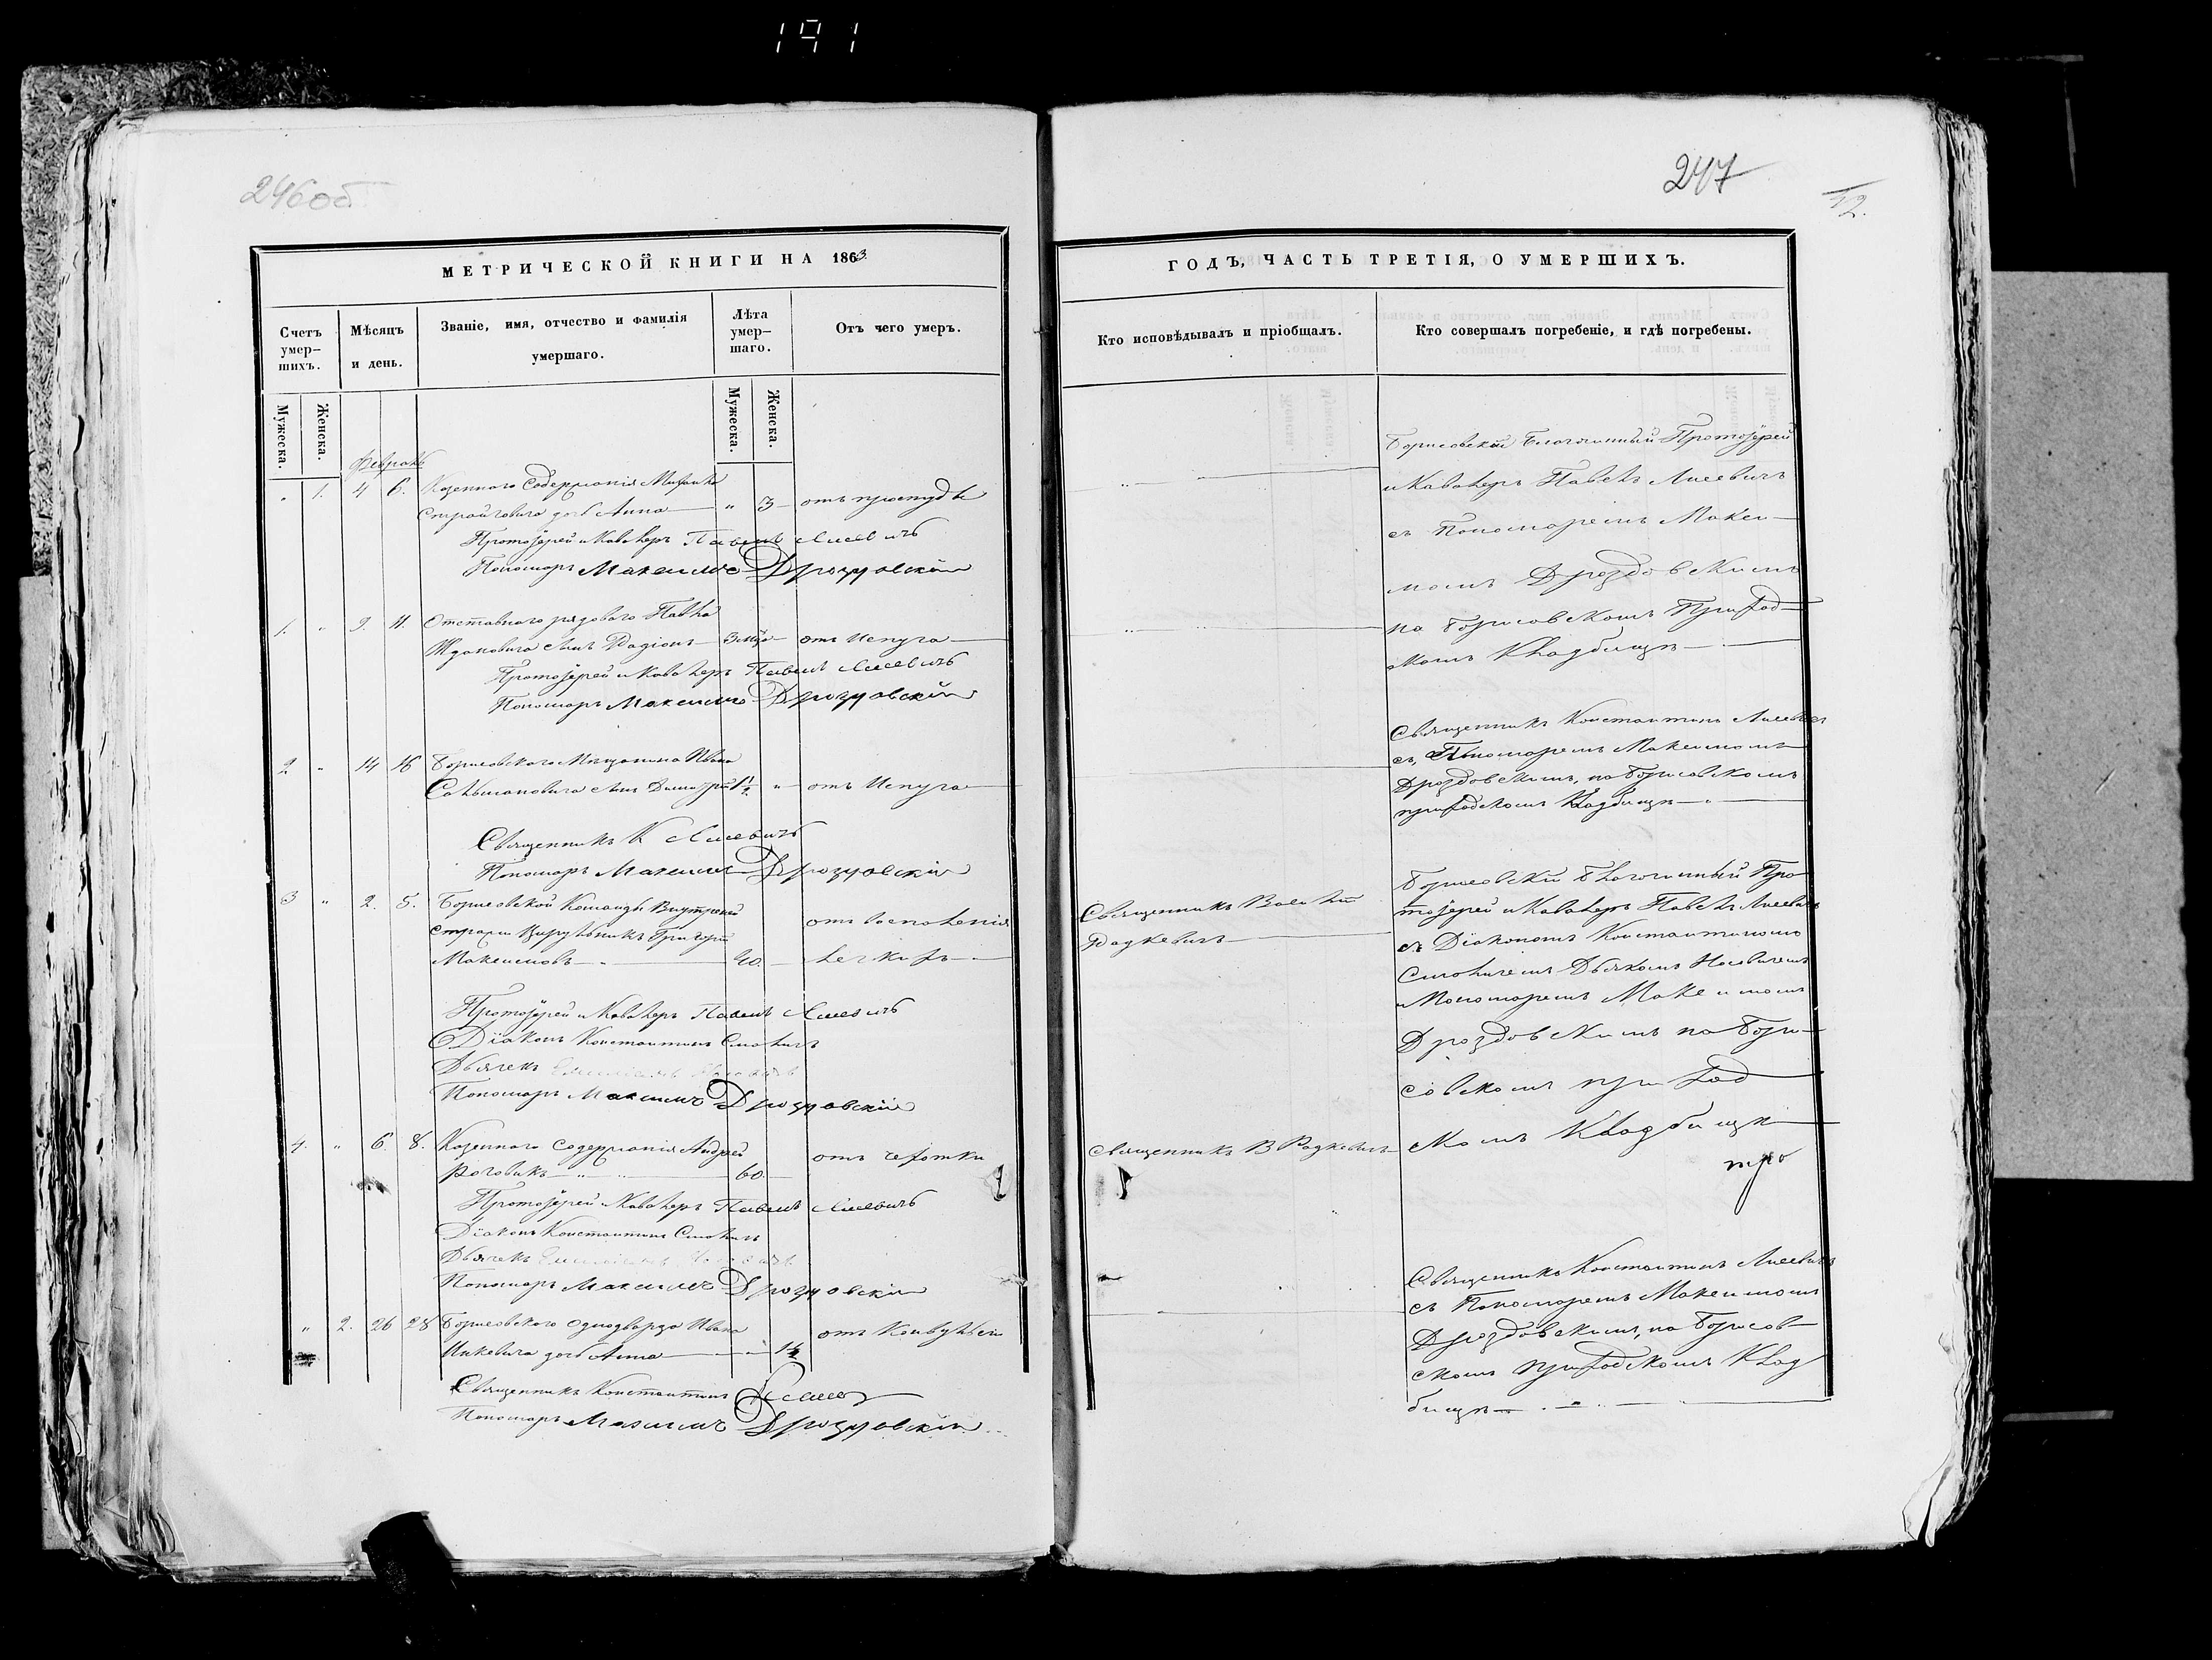 191
246об
247
12.
МЕТРИЧЕСКОЙ КНИГИ НА 1863
Счетъ умер-
шихъ.
Мѣсяцъ
и день.
Званіе, имя, отчество и фамилія
умершаго.
Лѣта
умер-
шаго.
Отъ чего умеръ.
Мужеска.
Женска.
Мужеска.
Женска.
Февраль
" 1. 4 6. Казеннаго Содержанія
доч Анна " 3 отъ простуды
Протоіерей и Кавалеръ Павелъ Лисевичъ
Пономарь Максимъ Дроздовскій
1. " 9. 11. Отставнаго рядоваго Павла
Ждановича сынъ Родіонъ 3 отъ испуга
Протоіерей и Кавалеръ Павелъ Лисевичъ
Пономарь Максимъ Дроздовскій
2 " 14 16 Борисовскаго Мѣщанина Ивана
сынъ Димитрій 1½ " отъ испуга
Священникъ К Лисевичъ
Пономарь Максимъ Дроздовскій
3 " 2. 5. Борисовской Команды Внутреней
стражи Цирульникъ Григорій отъ воспаленія
Максимовъ 40. легкихъ
Протоіерей и Кавалеръ Павелъ Лисевичъ
Діаконъ Константинъ Смоличъ
Дьячекъ
Пономарь Максимъ Дроздовскій
4. " 6. 8. Казеннаго содержанія Андрей отъ чахотки
Роговикъ 60.
Протоіерей и Кавалеръ Павелъ Лисевичъ
Діаконъ Константинъ Смоличъ
Дьячекъ
Пономарь Максимъ Дроздовскій
" 2. 26 28 Борисовскаго однодворца Ивана отъ конвульсіи
доч Анна 1½
Священникъ Константинъ
Пономарь Максимъ Дроздовскій
ГОДЪ, ЧАСТЬ ТРЕТІЯ, О УМЕРШИХЪ.
Кто исповѣдывалъ и пріобщалъ.
Кто совершалъ погребеніе, и гдѣ погребены.
Борисовскій Благочинный Протоіерей
и Кавалеръ Павелъ Лисевичъ
съ Пономаремъ Макси-
момъ Дроздовскимъ
на Борисовскомъ Приход-
скомъ Кладбищѣ
Священникъ Константинъ Лисевичъ
съ Пономаремъ Максимомъ
Дроздовскимъ, на Борисовскомъ
приходскомъ Кладбищѣ
Священникъ Василій
Радкевичъ
Борисовскій Благочинный Про
тоіерей и Кавалеръ Павелъ Лисевичъ
съ Діакономъ Константиномъ
Смоличемъ Дьякомъ
и Пономаремъ Максимомъ
Дроздовскимъ на Бори-
совскомъ приход
скомъ Кладбищѣ
Священникъ В Радкевичъ
Священникъ Константинъ Лисевичъ
съ Пономаремъ Максимомъ
Дроздовскимъ, на Борисов
скомъ приходскомъ Клад
бищѣ